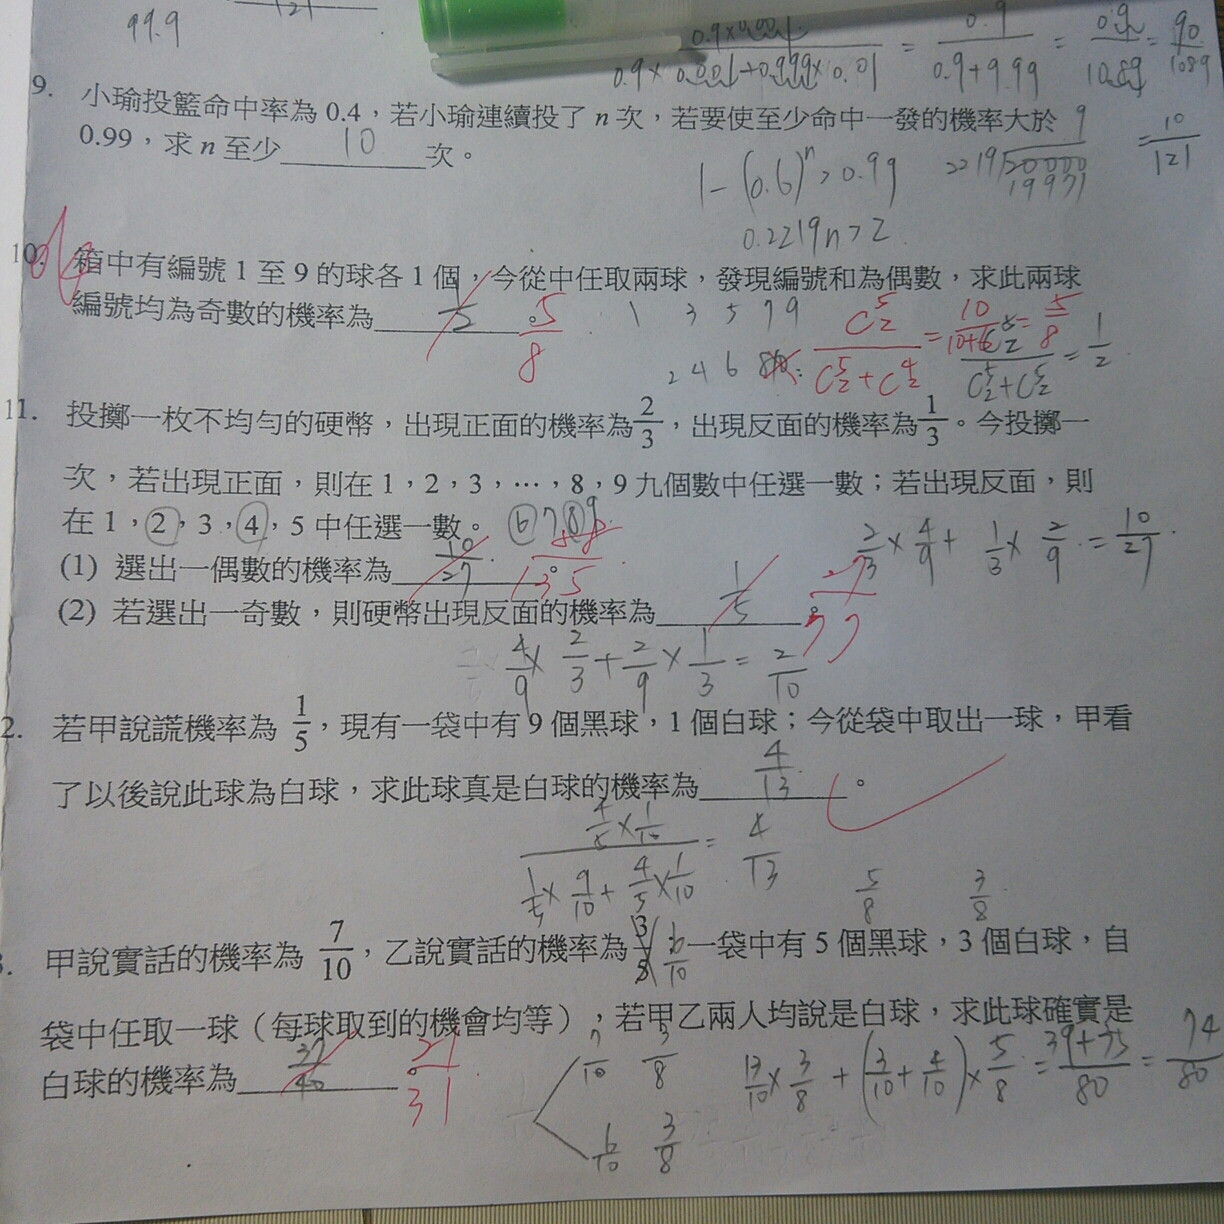 99.9
121
0.9×0.001 / 0.9×0.001+0.999×0.01 = 0.9 / 0.9+9.99 = 0.9 / 10.89 = 90 / 1089
= 10/121
9. 小瑜投籃命中率為 0.4，若小瑜連續投了 n 次，若要使至少命中一發的機率大於
0.99，求 n 至少 10 次。
9
2219 20000
19971
1-(0.6)^n > 0.99
0.2219n > 2
10. 箱中有編號 1 至 9 的球各 1 個，今從中任取兩球，發現編號和為偶數，求此兩球
編號均為奇數的機率為 1/2 。 5/8
1 3 5 7 9
2 4 6 8
C5 2 / C5 2 + C4 2 = 10 / 10+6 = 5/8
C5 2 / C5 2 + C5 2 = 1/2
11. 投擲一枚不均勻的硬幣，出現正面的機率為 2/3，出現反面的機率為 1/3。今投擲一
次，若出現正面，則在 1，2，3，…，8，9 九個數中任選一數；若出現反面，則
在 1，2，3，4，5 中任選一數。 6 7 8 9
(1) 選出一偶數的機率為 10/27 。 58/135
2/3 × 4/9 + 1/3 × 2/9 = 10/27
(2) 若選出一奇數，則硬幣出現反面的機率為 1/5 。 27/77
4/9 × 2/3 + 2/9 × 1/3 = 2/10
2. 若甲說謊機率為 1/5，現有一袋中有 9 個黑球，1 個白球；今從袋中取出一球，甲看
了以後說此球為白球，求此球真是白球的機率為 4/13 。
4/5 × 1/10 / 1/5 × 9/10 + 4/5 × 1/10 = 4/13
5/8 3/8
3. 甲說實話的機率為 7/10，乙說實話的機率為 6/10 一袋中有 5 個黑球，3 個白球，自
袋中任取一球（每球取到的機會均等），若甲乙兩人均說是白球，求此球確實是
白球的機率為 37/40 。 21/31
7/10 3/8
6/10 3/8
13/10 × 3/8 + (3/10 + 4/10) × 5/8 = 39+35 / 80 = 74/80